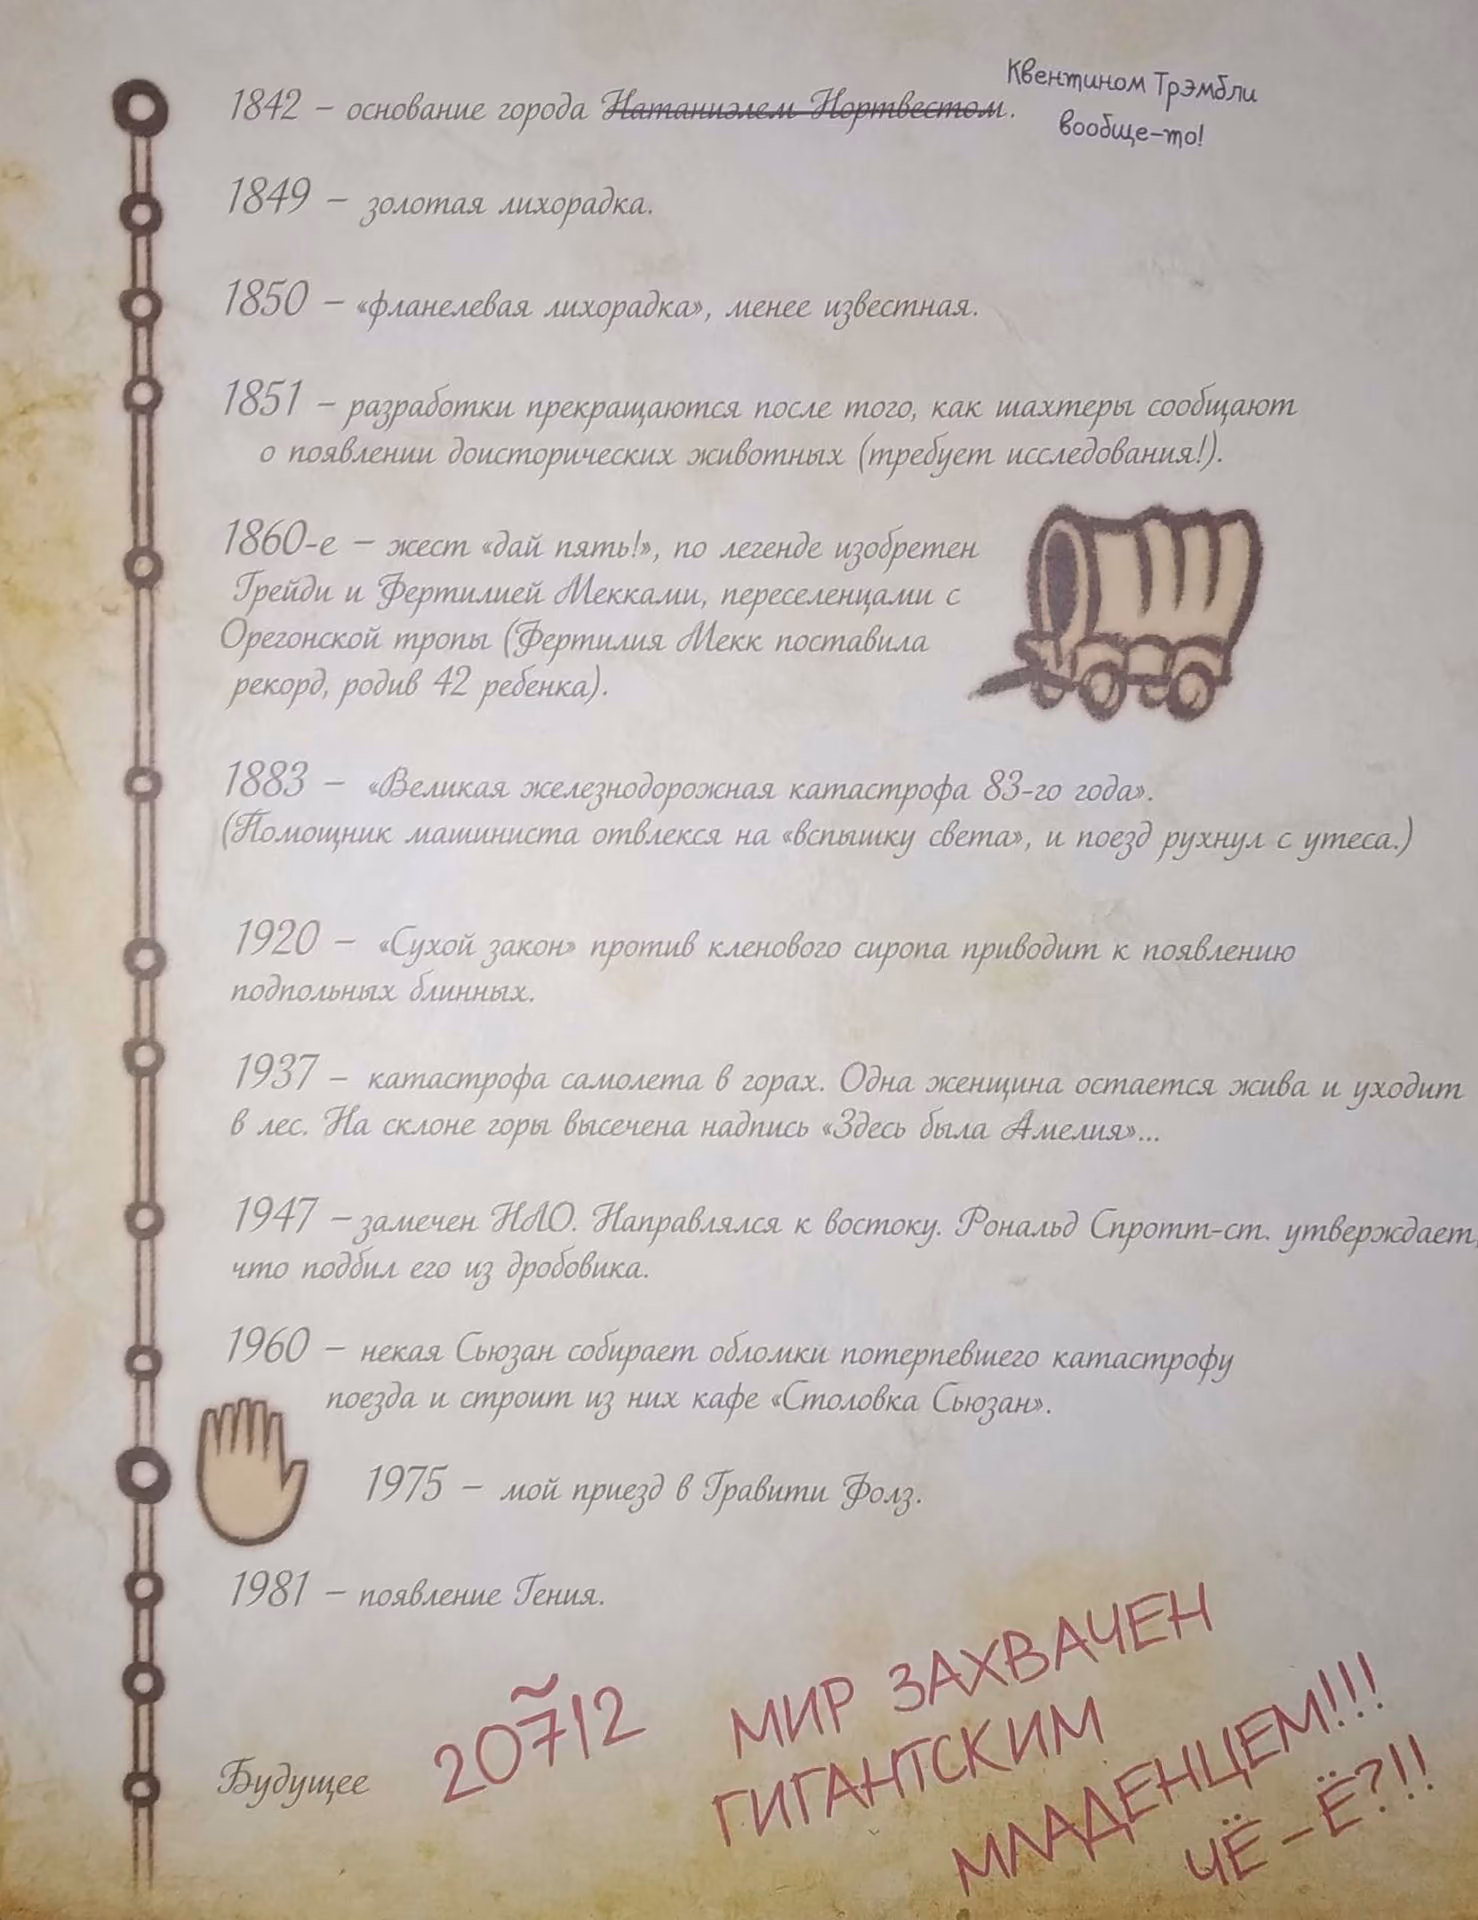 1842 – основание города Натаниэлем Нортвестом.
Квентином Трэмбли
вообще-то!
1849 – золотая лихорадка.
1850 – «фланелевая лихорадка», менее известная.
1851 – разработки прекращаются после того, как шахтеры сообщают
о появлении доисторических животных (требует исследования!).
1860-е – жест «дай пять!», по легенде изобретен
Грейди и Фертилией Мекками, переселенцами с
Орегонской тропы (Фертилия Мекк поставила
рекорд, родив 42 ребенка).
1883 – «Великая железнодорожная катастрофа 83-го года».
(Помощник машиниста отвлекся на «вспышку света», и поезд рухнул с утеса.)
1920 – «Сухой закон» против кленового сиропа приводит к появлению
подпольных блинных.
1937 – катастрофа самолета в горах. Одна женщина остается жива и уходит
в лес. На склоне горы высечена надпись «Здесь была Амелия»...
1947 – замечен НЛО. Направлялся к востоку. Рональд Спротт-ст. утверждает,
что подбил его из дробовика.
1960 – некая Сьюзан собирает обломки потерпевшего катастрофу
поезда и строит из них кафе «Столовка Сьюзан».
1975 – мой приезд в Гравити Фолз.
1981 – появление Гения.
Будущее
207̃12
МИР ЗАХВАЧЕН
ГИГАНТСКИМ
МЛАДЕНЦЕМ!!!
ЧЁ-Ё?!!